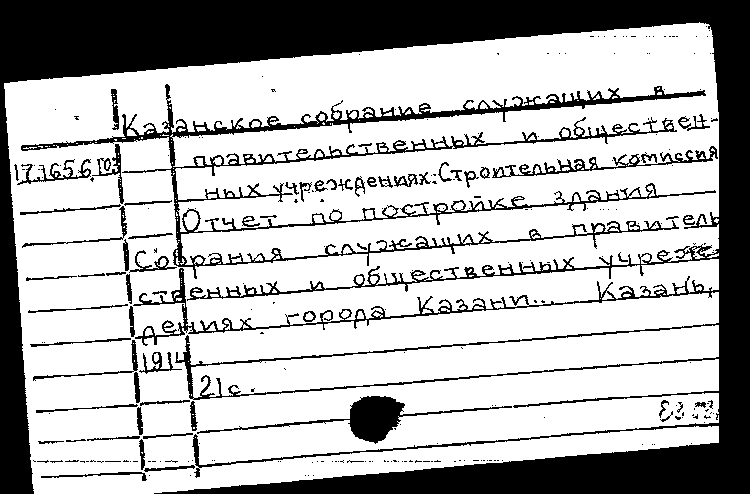 Казанское собрание служащих в
правительственных и обществен-
17.165.6.Г03
ных учреждениях. Строительная комиссия
Отчет по постройке здания
Собрания служащих в правитель
ственных и общественных учреж-
дениях города Казани... Казань,
1914.
21 с.